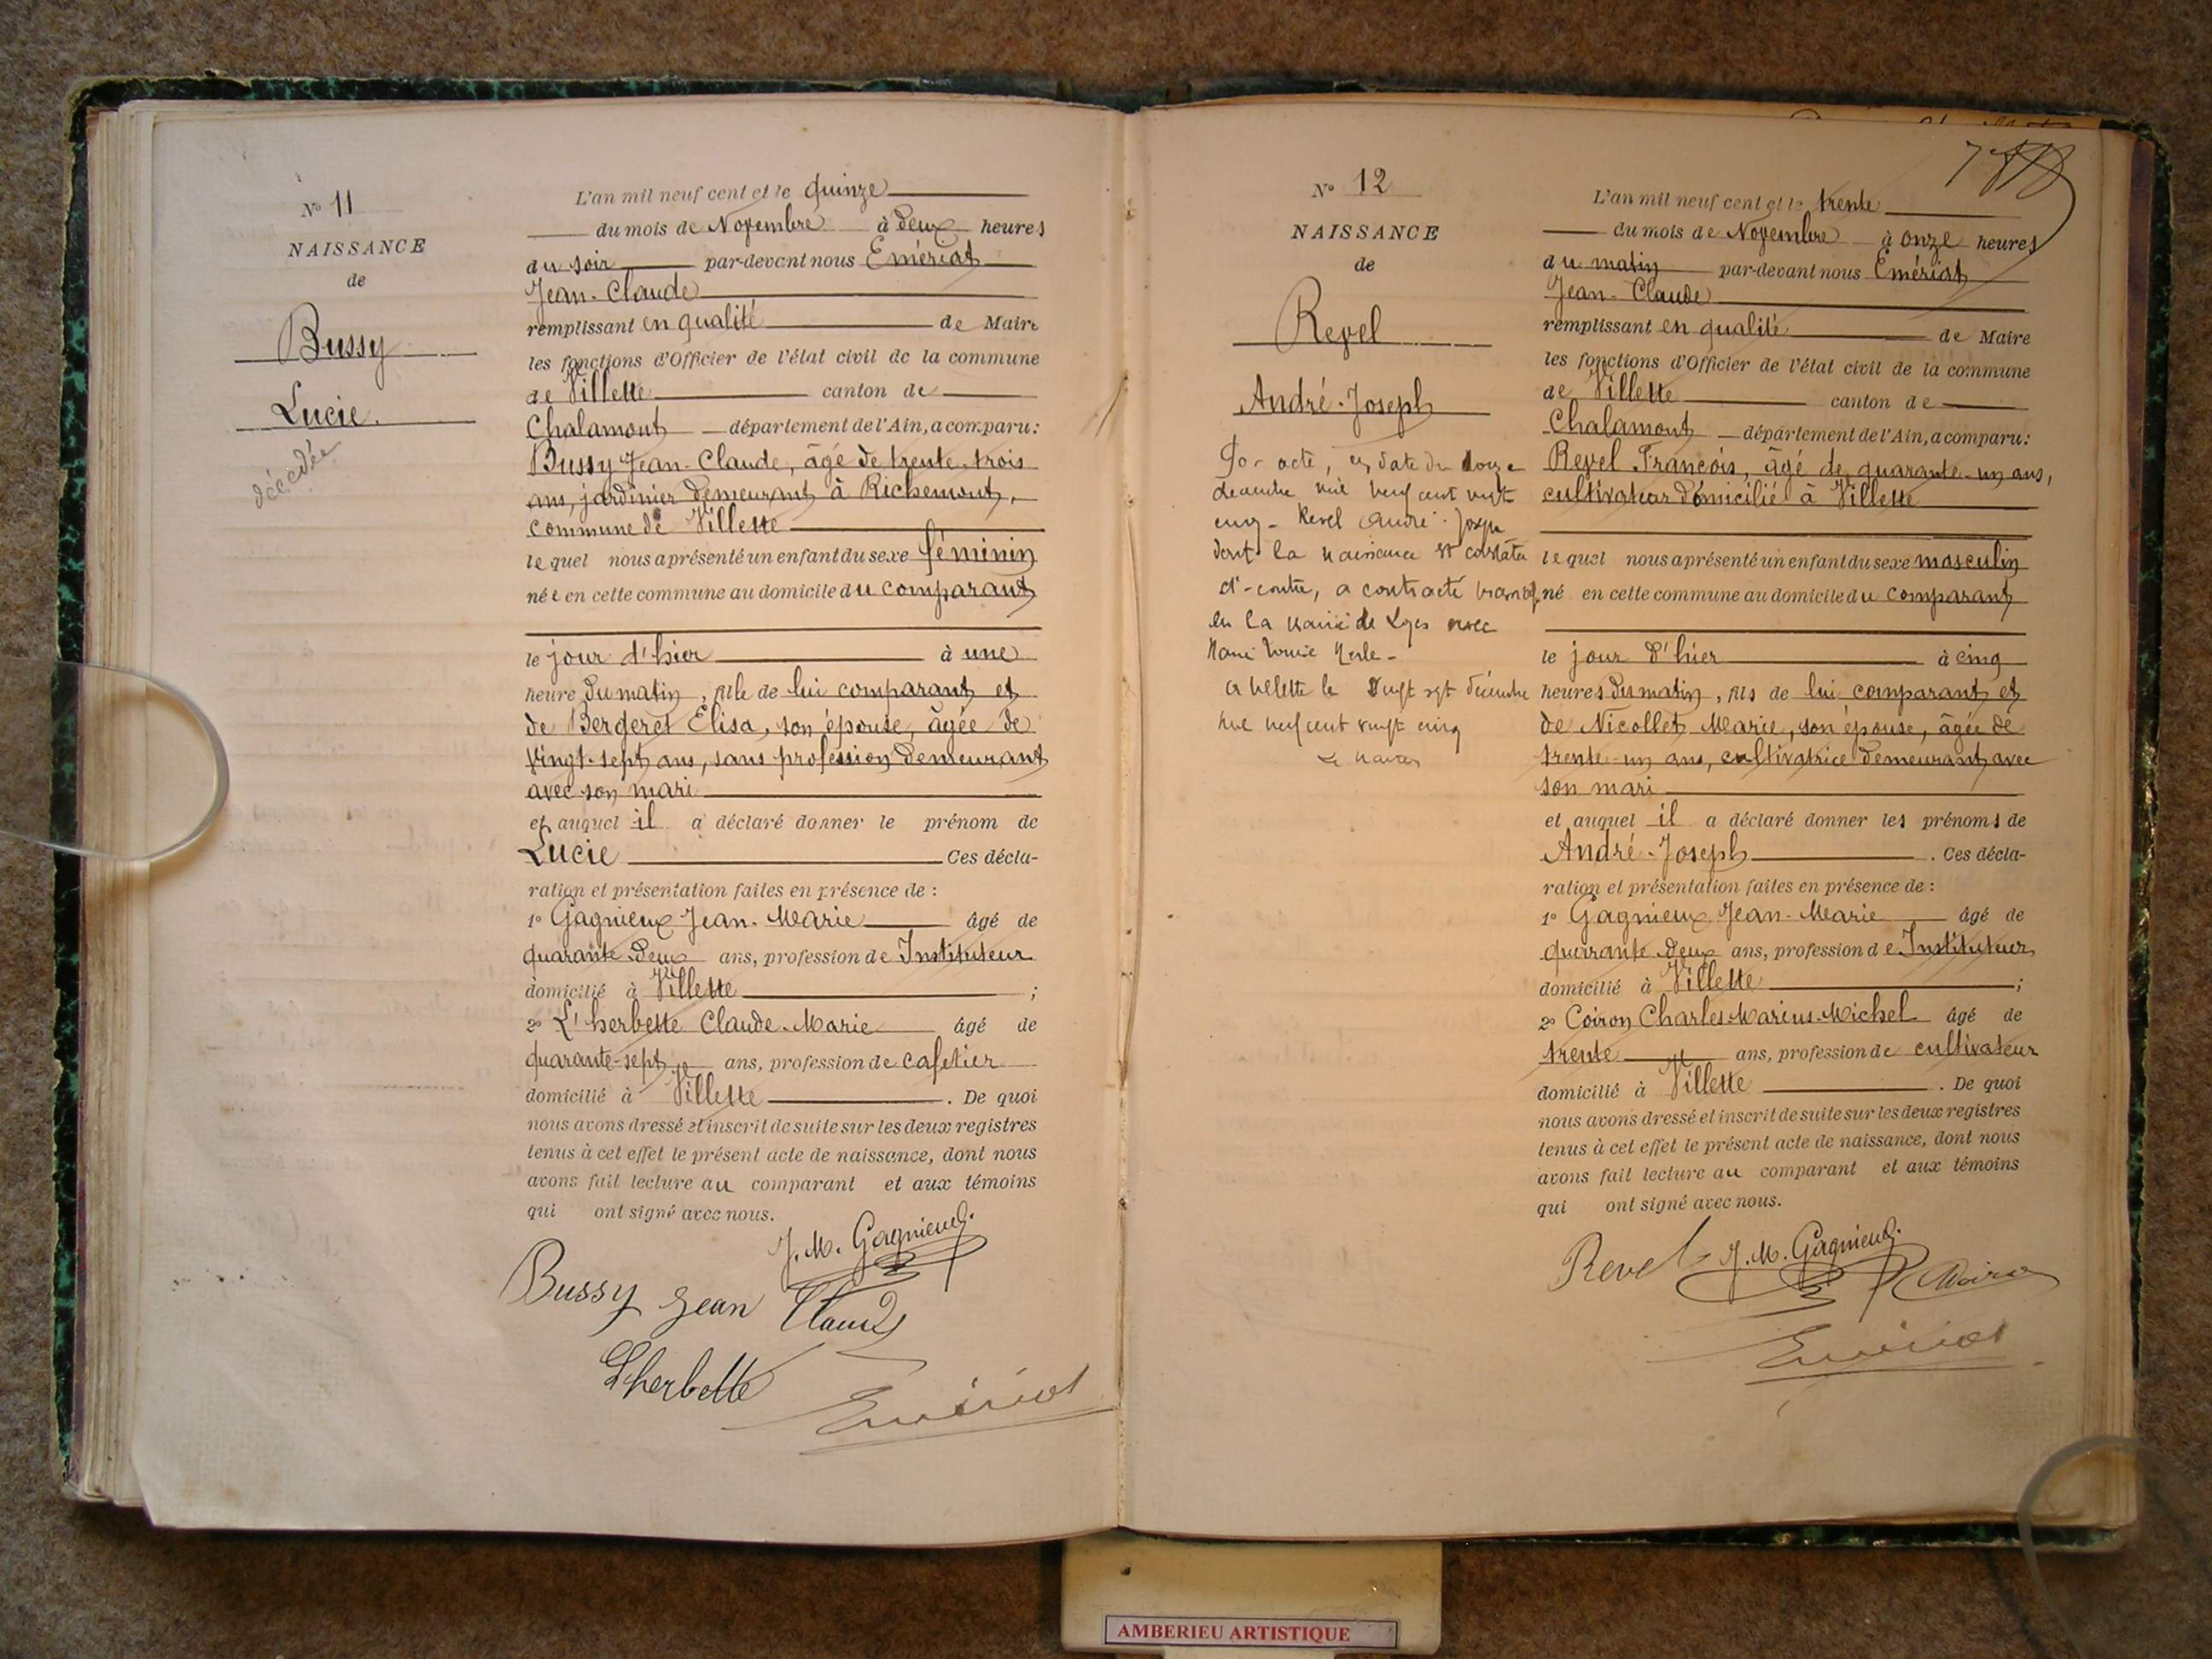 N° 11
NAISSANCE
de
Bussy
Lucie.
décédée
L'an mil neuf cent et le quinze
du mois de Novembre à deux heures
du soir par-devant nous Emériat
Jean-Claude
remplissant en qualité de Maire
les fonctions d'Officier de l'état civil de la commune
de Villette canton de
Chalamont département de l'Ain, a comparu :
Bussy Jean-Claude, âgé de trente-trois
ans, jardinier demeurant à Richemont,
commune de Villette
le quel nous a présenté un enfant du sexe féminin
née en cette commune au domicile du comparant
le jour d'hier à une
heure du matin, fille de lui comparant et
de Bergeret Elisa, son épouse, âgée de
vingt-sept ans, sans profession demeurant
avec son mari
et auquel il a déclaré donner le prénom de
Lucie Ces décla-
ration et présentation faites en présence de :
1° Gagnieux Jean-Marie âgé de
quarante-deux ans, profession de Instituteur
domicilié à Villette ;
2° L'herbette Claude-Marie âgé de
quarante-sept ans, profession de cafetier
domicilié à Villette . De quoi
nous avons dressé et inscrit de suite sur les deux registres
tenus à cet effet le présent acte de naissance, dont nous
avons fait lecture au comparant et aux témoins
qui ont signé avec nous.
J. M. Gagnieux.
Bussy Jean Claude
Lherbette
Emériat
7
N° 12
NAISSANCE
de
Revel
André-Joseph
acte, en date du douze
décembre mil neuf cent vingt
cinq - Revel André-Joseph
dont la naissance est constatée
ci-contre, a contracté mariage
en la mairie de avec
Marie Louise Merle -
A Villette le vingt sept décembre
mil neuf cent vingt cinq
Le Maire
L'an mil neuf cent et le trente
du mois de Novembre à onze heures
du matin par-devant nous Emériat
Jean-Claude
remplissant en qualité de Maire
les fonctions d'Officier de l'état civil de la commune
de Villette canton de
Chalamont département de l'Ain, a comparu :
Revel François, âgé de quarante-un ans,
cultivateur domicilié à Villette
le quel nous a présenté un enfant du sexe masculin
né en cette commune au domicile du comparant
le jour d'hier à cinq
heures du matin, fils de lui comparant et
de Nicollet Marie, son épouse, âgée de
trente-un ans, cultivatrice demeurant avec
son mari
et auquel il a déclaré donner les prénoms de
André-Joseph . Ces décla-
ration et présentation faites en présence de :
1° Gagnieux Jean-Marie âgé de
quarante-deux ans, profession de Instituteur
domicilié à Villette ;
2° Coiron Charles-Marius-Michel âgé de
trente ans, profession de cultivateur
domicilié à Villette . De quoi
nous avons dressé et inscrit de suite sur les deux registres
tenus à cet effet le présent acte de naissance, dont nous
avons fait lecture au comparant et aux témoins
qui ont signé avec nous.
Revel J. M. Gagnieux. Coiron
Emériat
AMBERIEU ARTISTIQUE